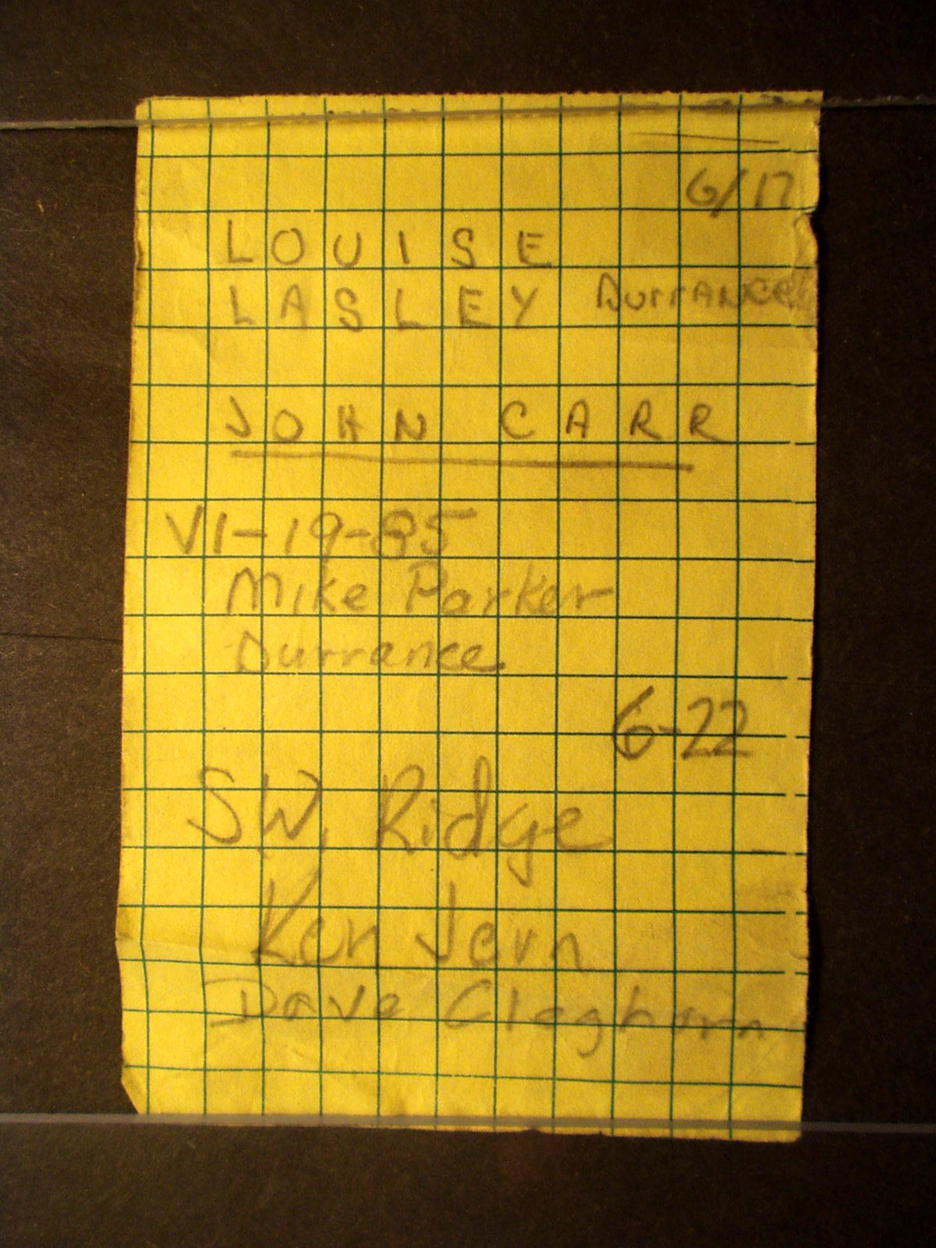 6/17
LOUISE
LASLEY Durrance
JOHN CARR
VI-19-85
Mike Parker
Durrance
6-22
SW. Ridge
Ken Jern
Dave Cleghorn